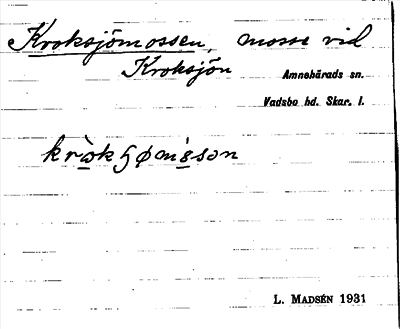 Kroksjömossen, mosse vid
Kroksjön
Amnehärads sn.
Vadsbo hd. Skar. l.
L. MADSÉN 1931